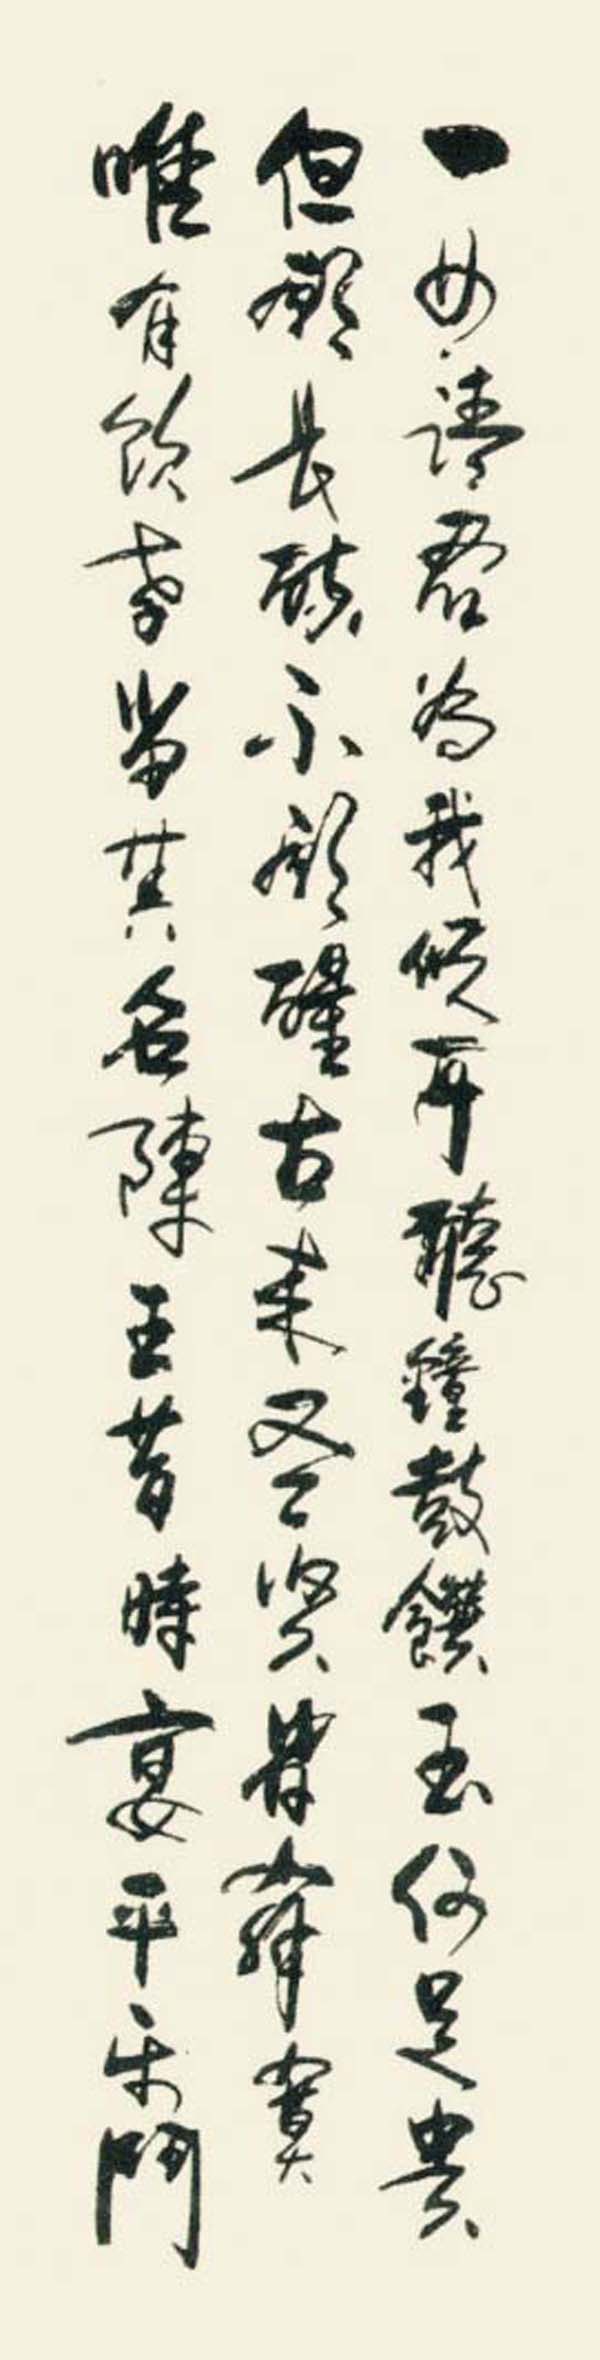 一曲請君為我傾耳聽鐘鼓饌玉何足貴
但願長醉不願醒古來聖賢皆寂寞
唯有飲者留其名陳王昔時宴平樂鬥